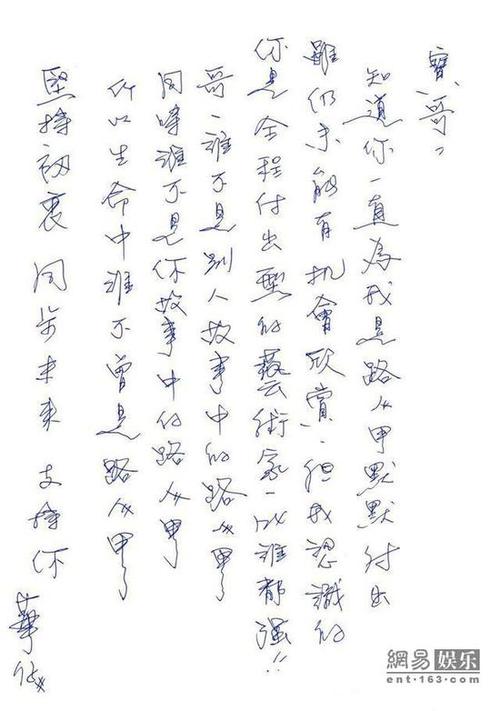 寶哥:
知道你一直為我是路人甲默默付出
雖仍未能有机會欣賞,但我認識的
你是全程付出型的藝術家,比誰都強!!
哥,誰不是別人故事中的路人甲
同時誰不是你故事中的路人甲
所以生命中誰不曾是路人甲
堅持初衷 同步未來 支持你
華仔
網易娱乐
ent·163.com